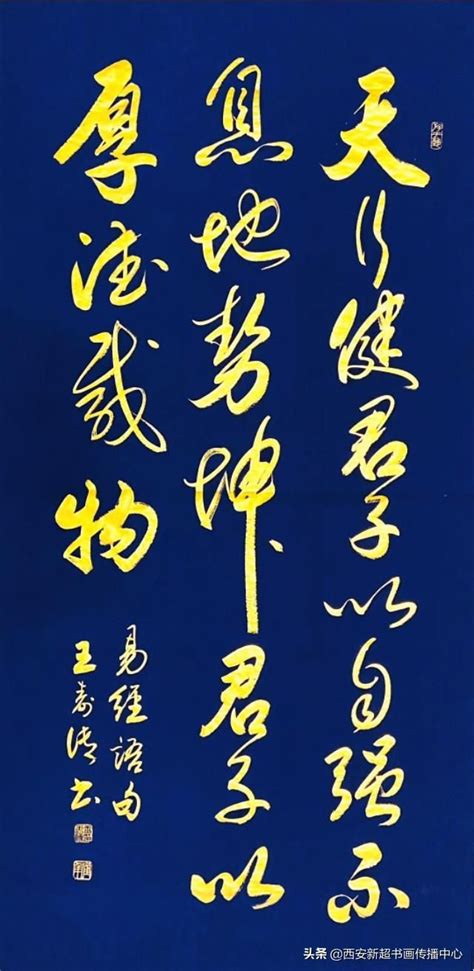 天行健君子以自强不
息地势坤君子以
厚德载物
易经语句
王寿清书
头条 @西安新超书画传播中心